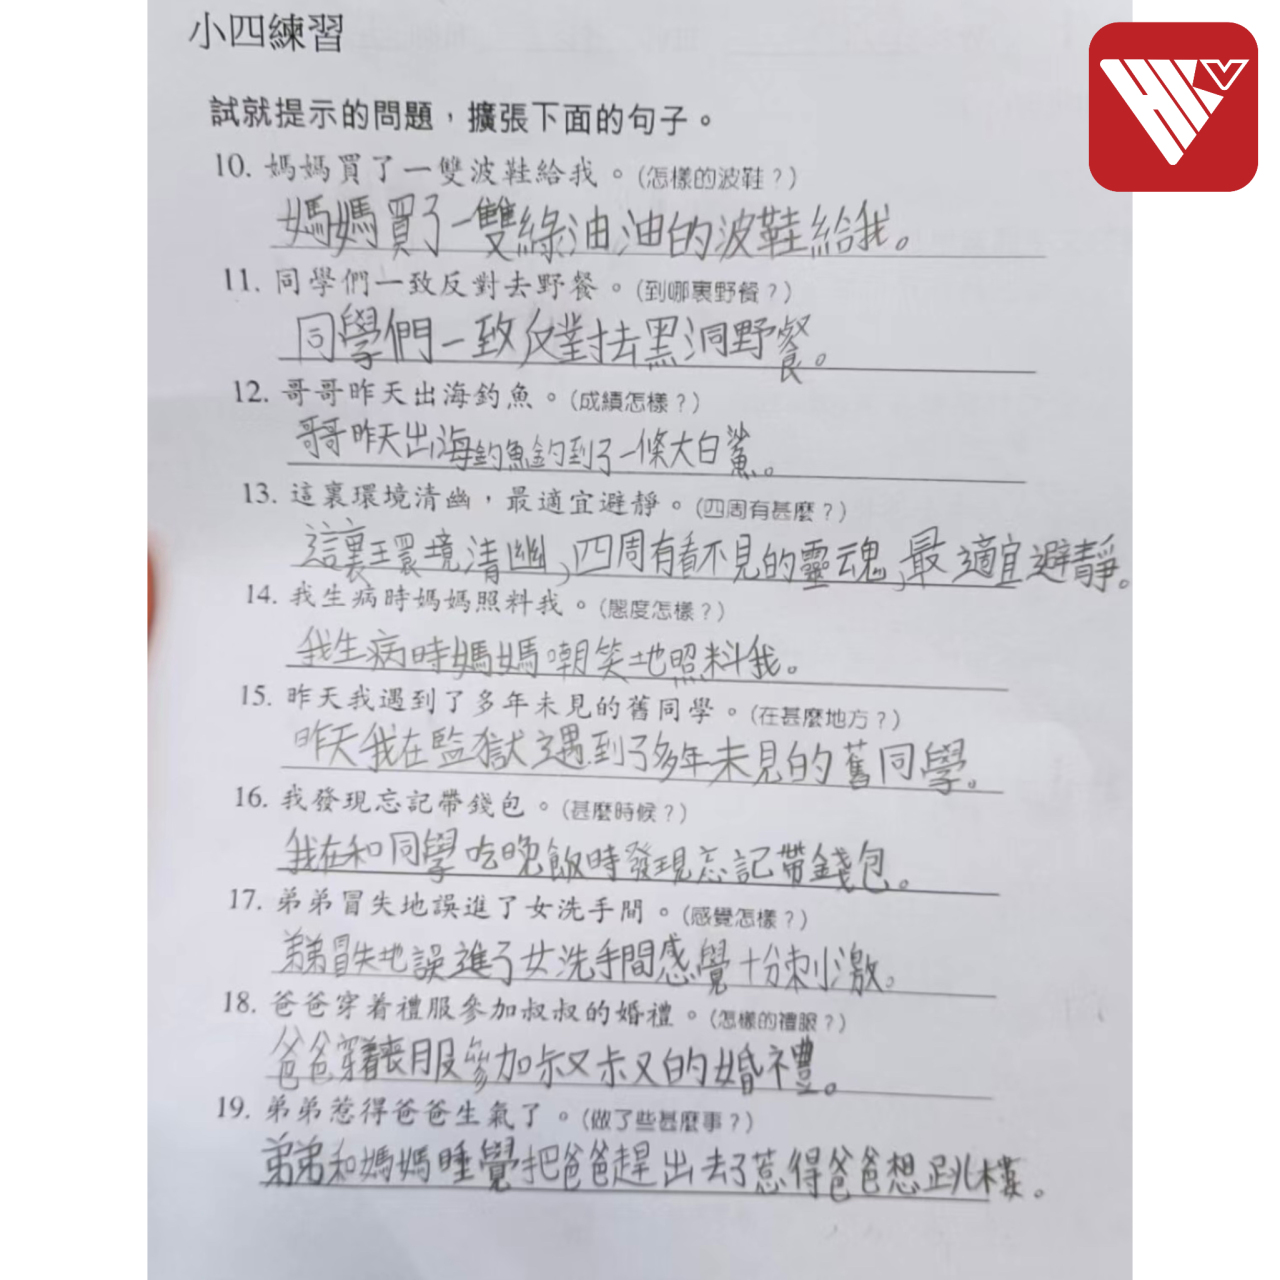 小四練習
試就提示的問題，擴張下面的句子。
10. 媽媽買了一雙波鞋給我。(怎樣的波鞋？)
媽媽買了一雙綠油油的波鞋給我。
11. 同學們一致反對去野餐。(到哪裏野餐？)
同學們一致反對去黑洞野餐。
12. 哥哥昨天出海釣魚。(成績怎樣？)
哥哥昨天出海釣魚釣到了一條大白鯊。
13. 這裏環境清幽，最適宜避靜。(四周有甚麼？)
這裏環境清幽,四周有看不見的靈魂,最適宜避靜。
14. 我生病時媽媽照料我。(態度怎樣？)
我生病時媽媽嘲笑地照料我。
15. 昨天我遇到了多年未見的舊同學。(在甚麼地方？)
昨天我在監獄遇到了多年未見的舊同學。
16. 我發現忘記帶錢包。(甚麼時候？)
我在和同學吃晚飯時發現忘記帶錢包。
17. 弟弟冒失地誤進了女洗手間。(感覺怎樣？)
弟弟冒失地誤進了女洗手間感覺十分刺激。
18. 爸爸穿着禮服參加叔叔的婚禮。(怎樣的禮服？)
爸爸穿着喪服參加叔叔的婚禮。
19. 弟弟惹得爸爸生氣了。(做了些甚麼事？)
弟弟和媽媽睡覺把爸爸趕出去了惹得爸爸想跳樓。